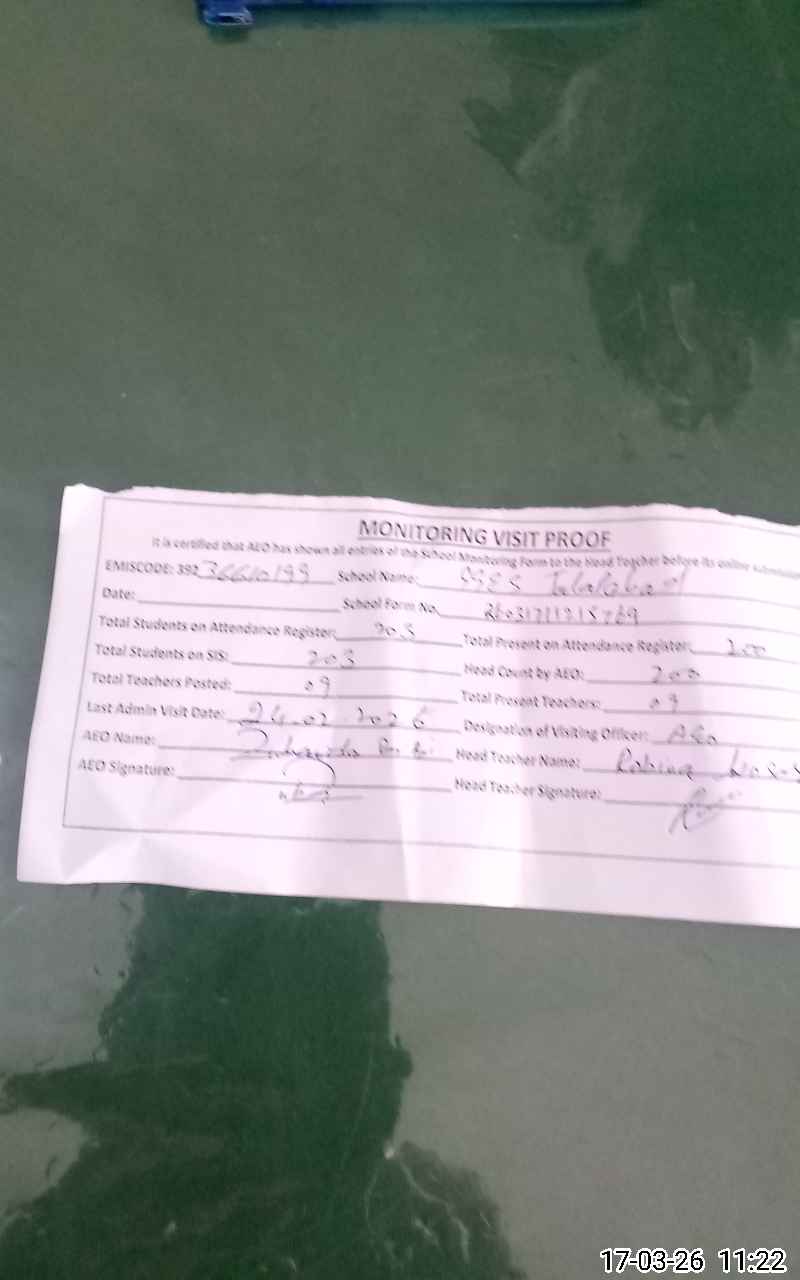 MONITORING VISIT PROOF
It is certified that AEO has shown all entries of the School Monitoring Form to the Head Teacher before its online submission
EMISCODE: 392 36610199 School Name: GGES
Date: School Form No. 26031711215769
Total Students on Attendance Register: 203 Total Present on Attendance Register: 200
Total Students on SIS: 203 Head Count by AEO: 200
Total Teachers Posted: 09 Total Present Teachers: 09
Last Admin Visit Date: 24.02.2026 Designation of Visiting Officer: AEO
AEO Name: Bi Bi Head Teacher Name: Robina
AEO Signature: Head Teacher Signature:
17-03-26 11:22